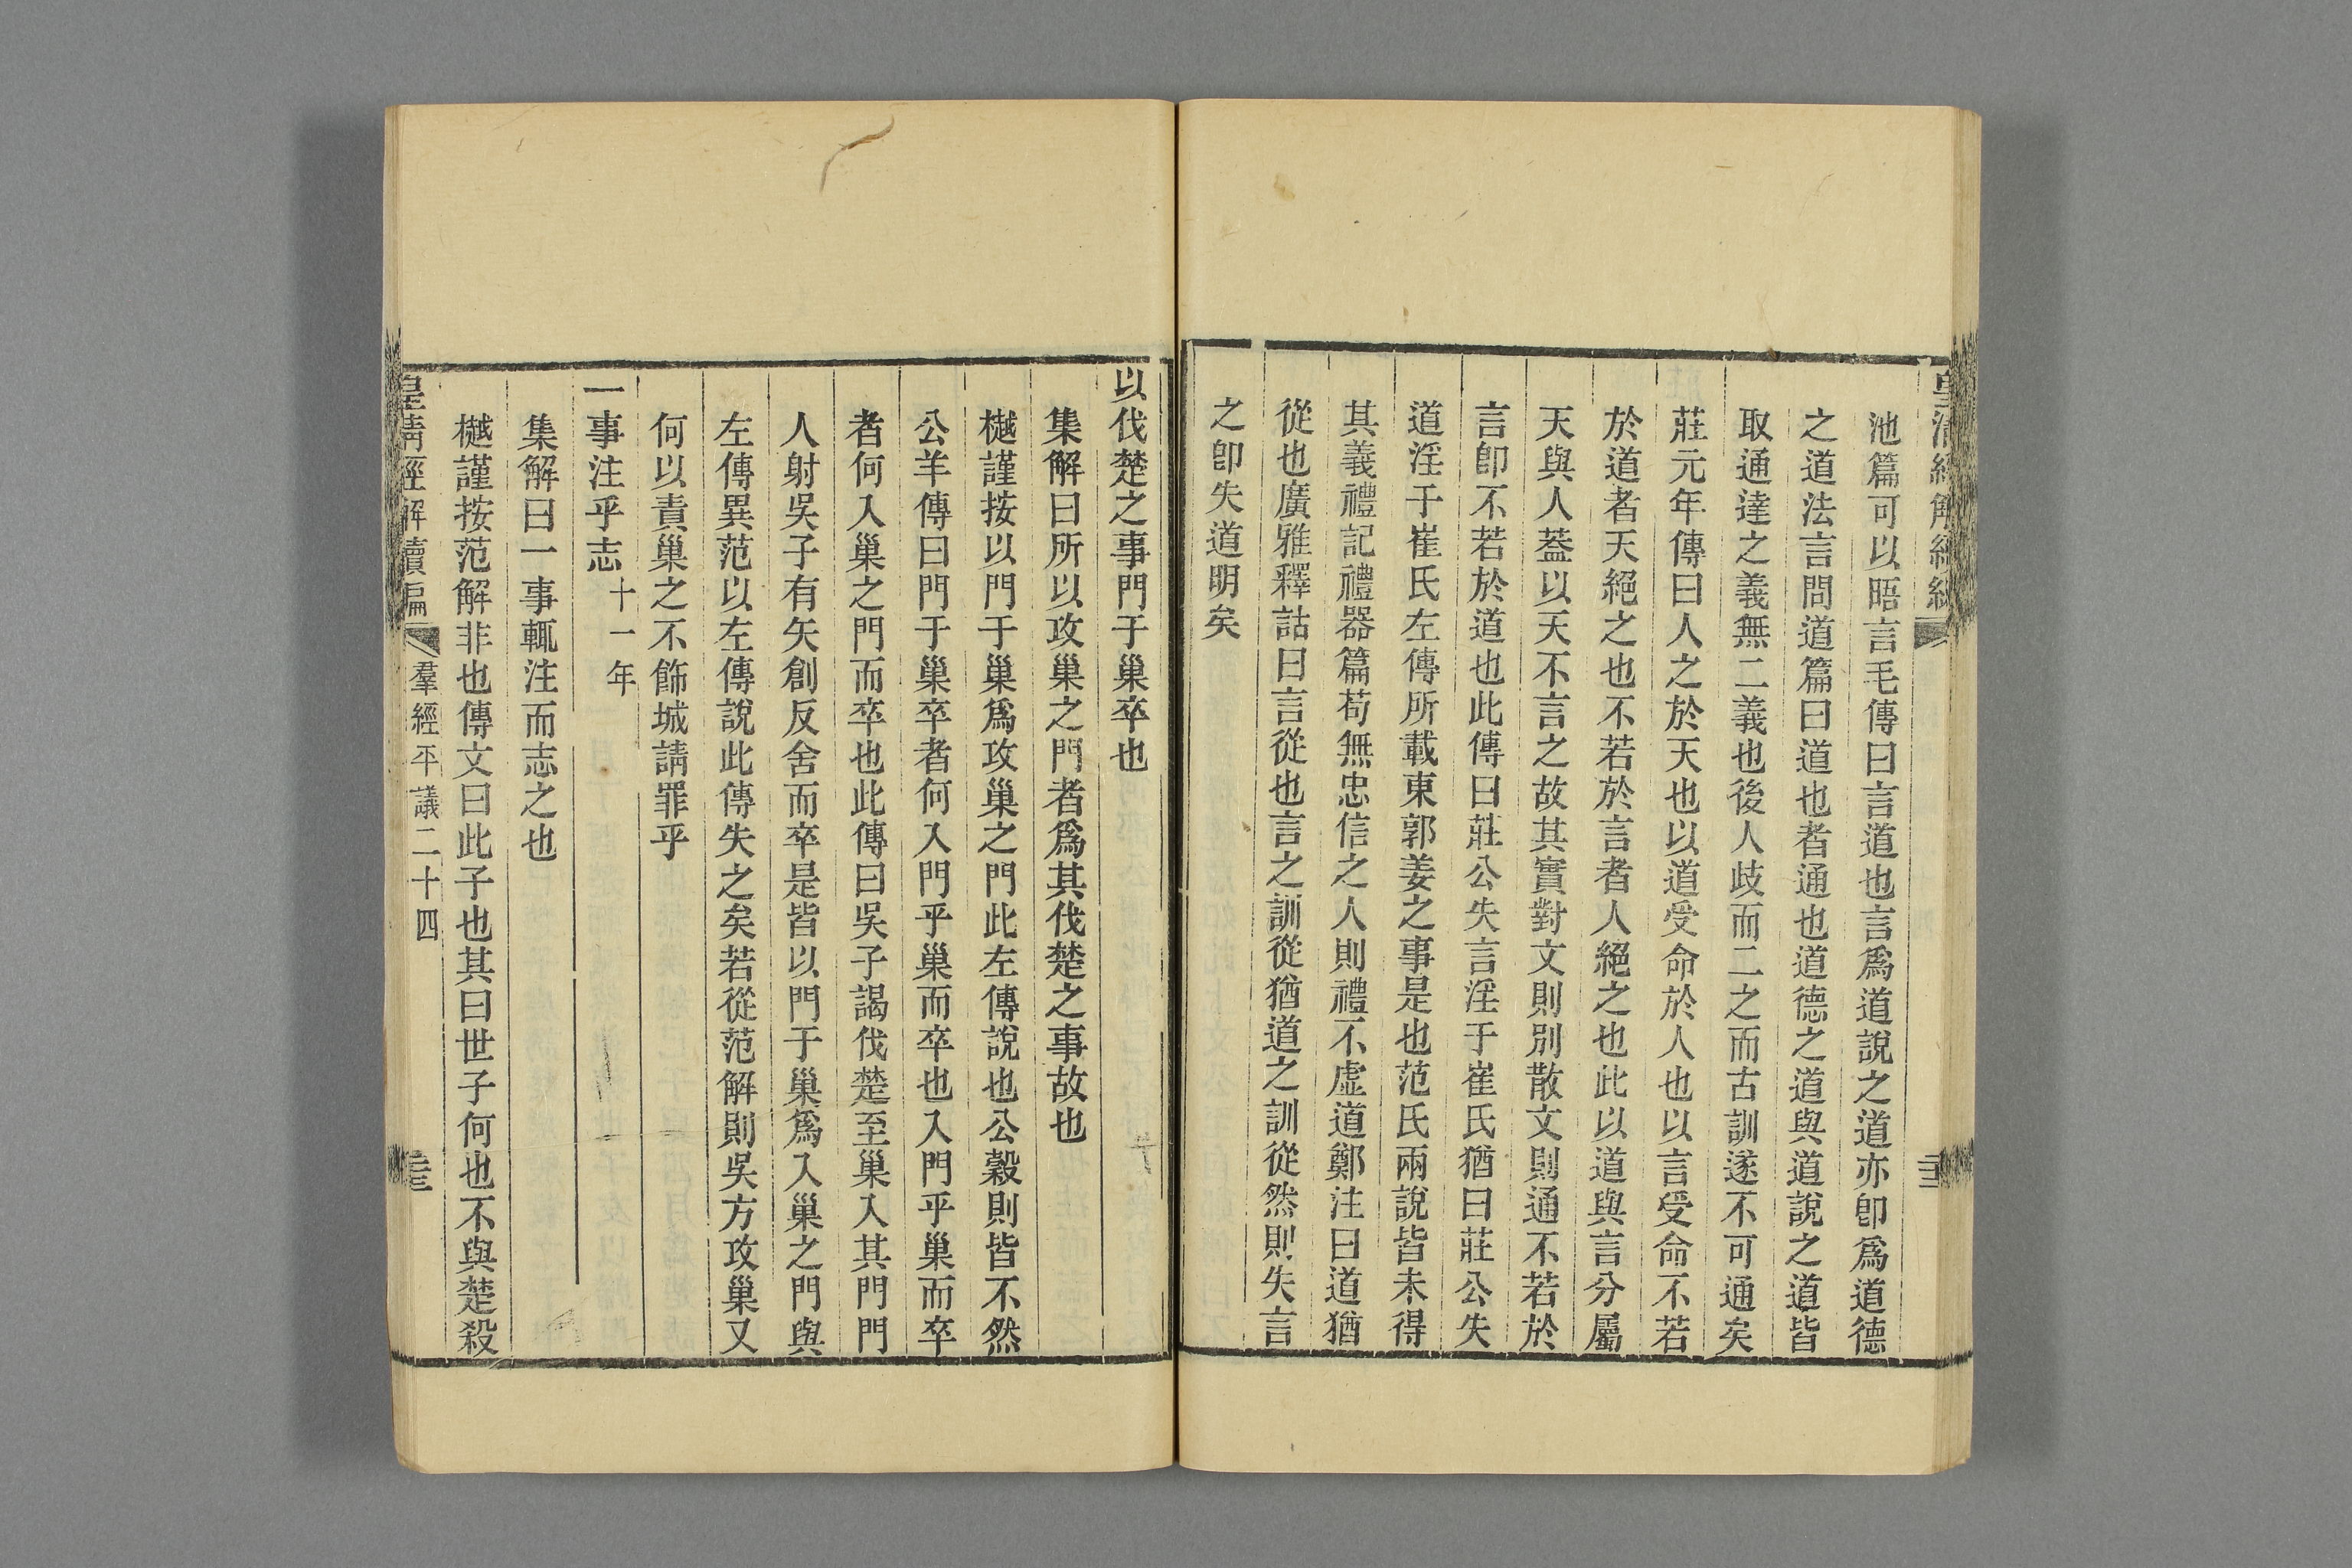 池篇可以晤言毛傳曰言道也言爲道說之道亦卽爲道德
之道法言問道篇曰道也者通也道德之道與道說之道皆
取通達之義無二義也後人歧而二之而古訓遂不可通矣
莊元年傳曰人之於天也以道受命於人也以言受命不若
於道者天絕之也不若於言者人絕之也此以道與言分屬
天與人葢以天不言之故其實對文則別散文則通不若於
言卽不若於道也此傳曰莊公失言淫于崔氏猶曰莊公失
道淫于崔氏左傳所載東郭姜之事是也范氏兩說皆未得
其義禮記禮器篇苟無忠信之人則禮不虛道鄭注曰道猶
從也廣雅釋詁曰言從也言之訓從猶道之訓從然則失言
之卽失道明矣
以伐楚之事門于巢卒也
集解曰所以攻巢之門者爲其伐楚之事故也
樾謹按以門于巢爲攻巢之門此左傳說也公穀則皆不然
公羊傳曰門于巢卒者何入門乎巢而卒也入門乎巢而卒
者何入巢之門而卒也此傳曰吳子謁伐楚至巢入其門門
人射吳子有矢創反舍而卒是皆以門于巢爲入巢之門與
左傳異范以左傳說此傳失之矣若從范解則吳方攻巢又
何以責巢之不飾城請罪乎
一事注乎志十一年
集解曰一事輒注而志之也
樾謹按范解非也傳文曰此子也其曰世子何也不與楚殺
皇清經解續編 羣經平議二十四